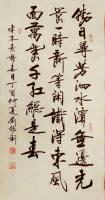 勝日尋芳泗水濱無邊光
景一時新等閒識得東風
面萬紫千紅總是春
朱熹詩春日丁酉仲夏劉